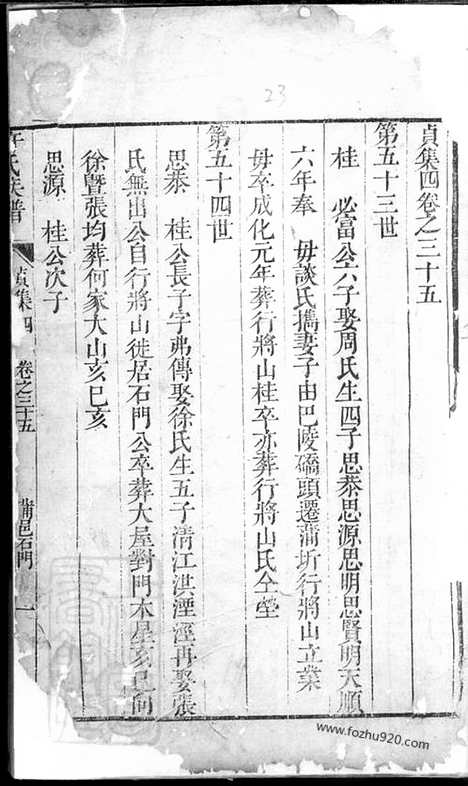 23
貞集四卷之三十五
第五十三世
桂 必富公六子娶周氏生四子思恭思源思明思賢明天順
六年奉 毋談氏攜妻子由巴陵磕頭遷蒲圻行將山立業
毋卒成化元年葬行將山桂卒亦葬行將山氏仝塋
第五十四世
思恭 桂公長子字弗傳娶徐氏生五子清江洪湮淫再娶張
氏無出公自行將山徙居石門公卒葬大屋對門木星亥巳向
徐暨張均葬何家大山亥巳亥
思源 桂公次子
氏族譜 貞集四 卷之三十五 蒲邑石門 一
www.fozhu920.com